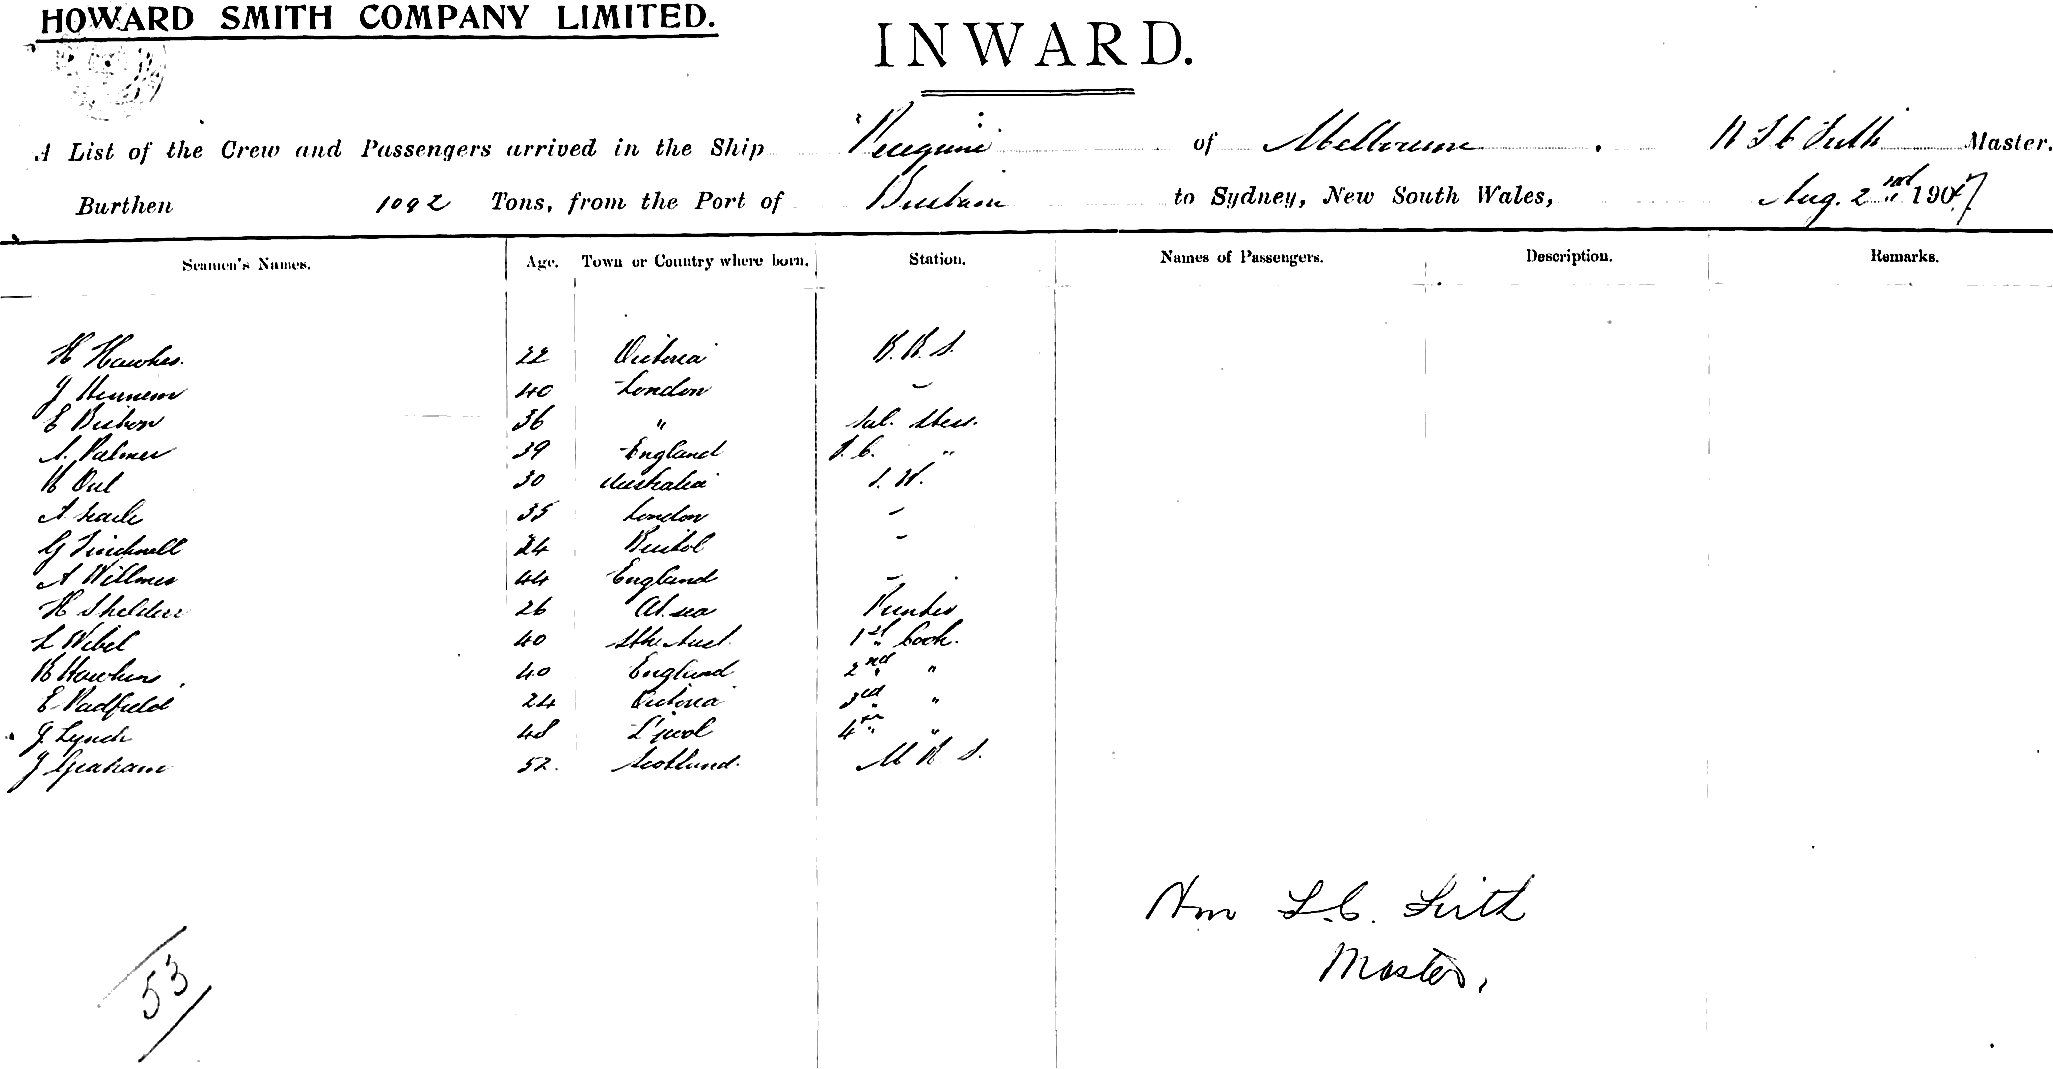 HOWARD SMITH COMPANY LIMITED.
INWARD.
A List of the Crew and Passengers arrived in the Ship Peregrine of Melbourne . W L C Firth Master.
Burthen 1092 Tons, from the Port of Brisbane to Sydney, New South Wales, Aug. 2nd 1907
Seamen's Names. Age. Town or Country where born. Station. Names of Passengers. Description. Remarks.
H Hawkes. 22 Victoria B. R. S.
J 40 London "
E Bishop 36 " Sal. Stess.
A. Palmer 39 England S. C. "
30 Australia S. W.
A 35 London "
G 24 Bristol "
A Willmer 44 England "
H Shelden 26 At sea
L Webel 40 Sth. Aust. 1st Cook.
Hawkins 40 England 2nd "
E Padfield 24 Victoria 3rd "
J. Lynch 48 L'pool 4th "
J Graham 52. Scotland. M R S.
Wm L. C. Firth
Master,
53